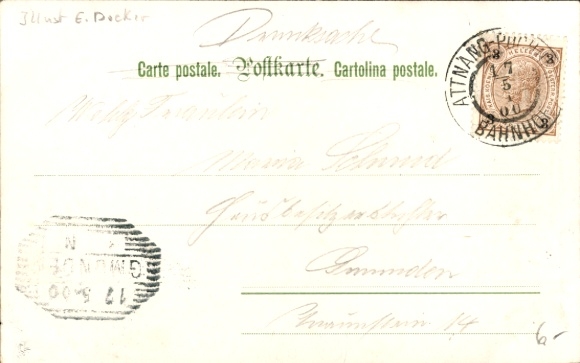 Illust E. Docker
Drucksache
Carte postale. Postkarte. Cartolina postale.
ATTNANG-PUCH
17
5
00
BAHNHO
3 HELLER 3
3 3
Fräulein
Maria Schmid
Hausbesitzerstochter
Gmunden
Traunstein 14
GMUNDEN
17 5 00
6-